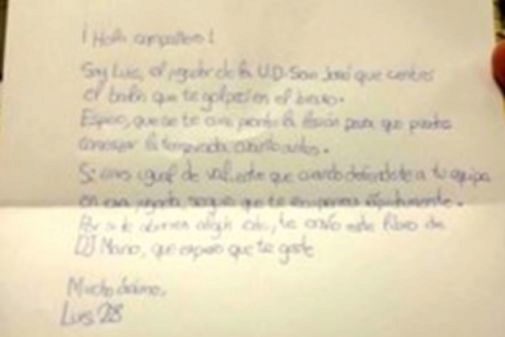 ¡Hola compañero!
Soy Luis, el jugador de la U.D. San José que centró
el balón que te golpeó en el brazo.
Espero, que se te cure pronto la lesión para que puedas
comenzar la temporada cuanto antes.
Si eres igual de valiente que cuando defendiste a tu equipo
en esa jugada, seguro que te recuperas rápidamente.
Por si te aburres algún día, te envío este libro de
DJ Mario, que espero que te guste
Mucho ánimo,
Luis 28